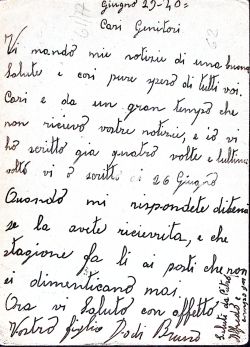 Giugno 29-40=
61/17
62
Cari Genitori
Vi mando mie notizie di una buona
Salute e così pure spero di tutti voi.
Cari e da un gran tempo che
non ricievo vostre notizie, e io vi
ho scritto già quatro volte e lultima
volto vi ò scritto il 26 Giugno
Quando mi rispondete ditemi
se la avite ricievrita, e che
stagione fa li ai posti che non
si dimenticano mai.
Ora vi Saluto con affetto
Vostro figlio Dodi Bruno
Saluti